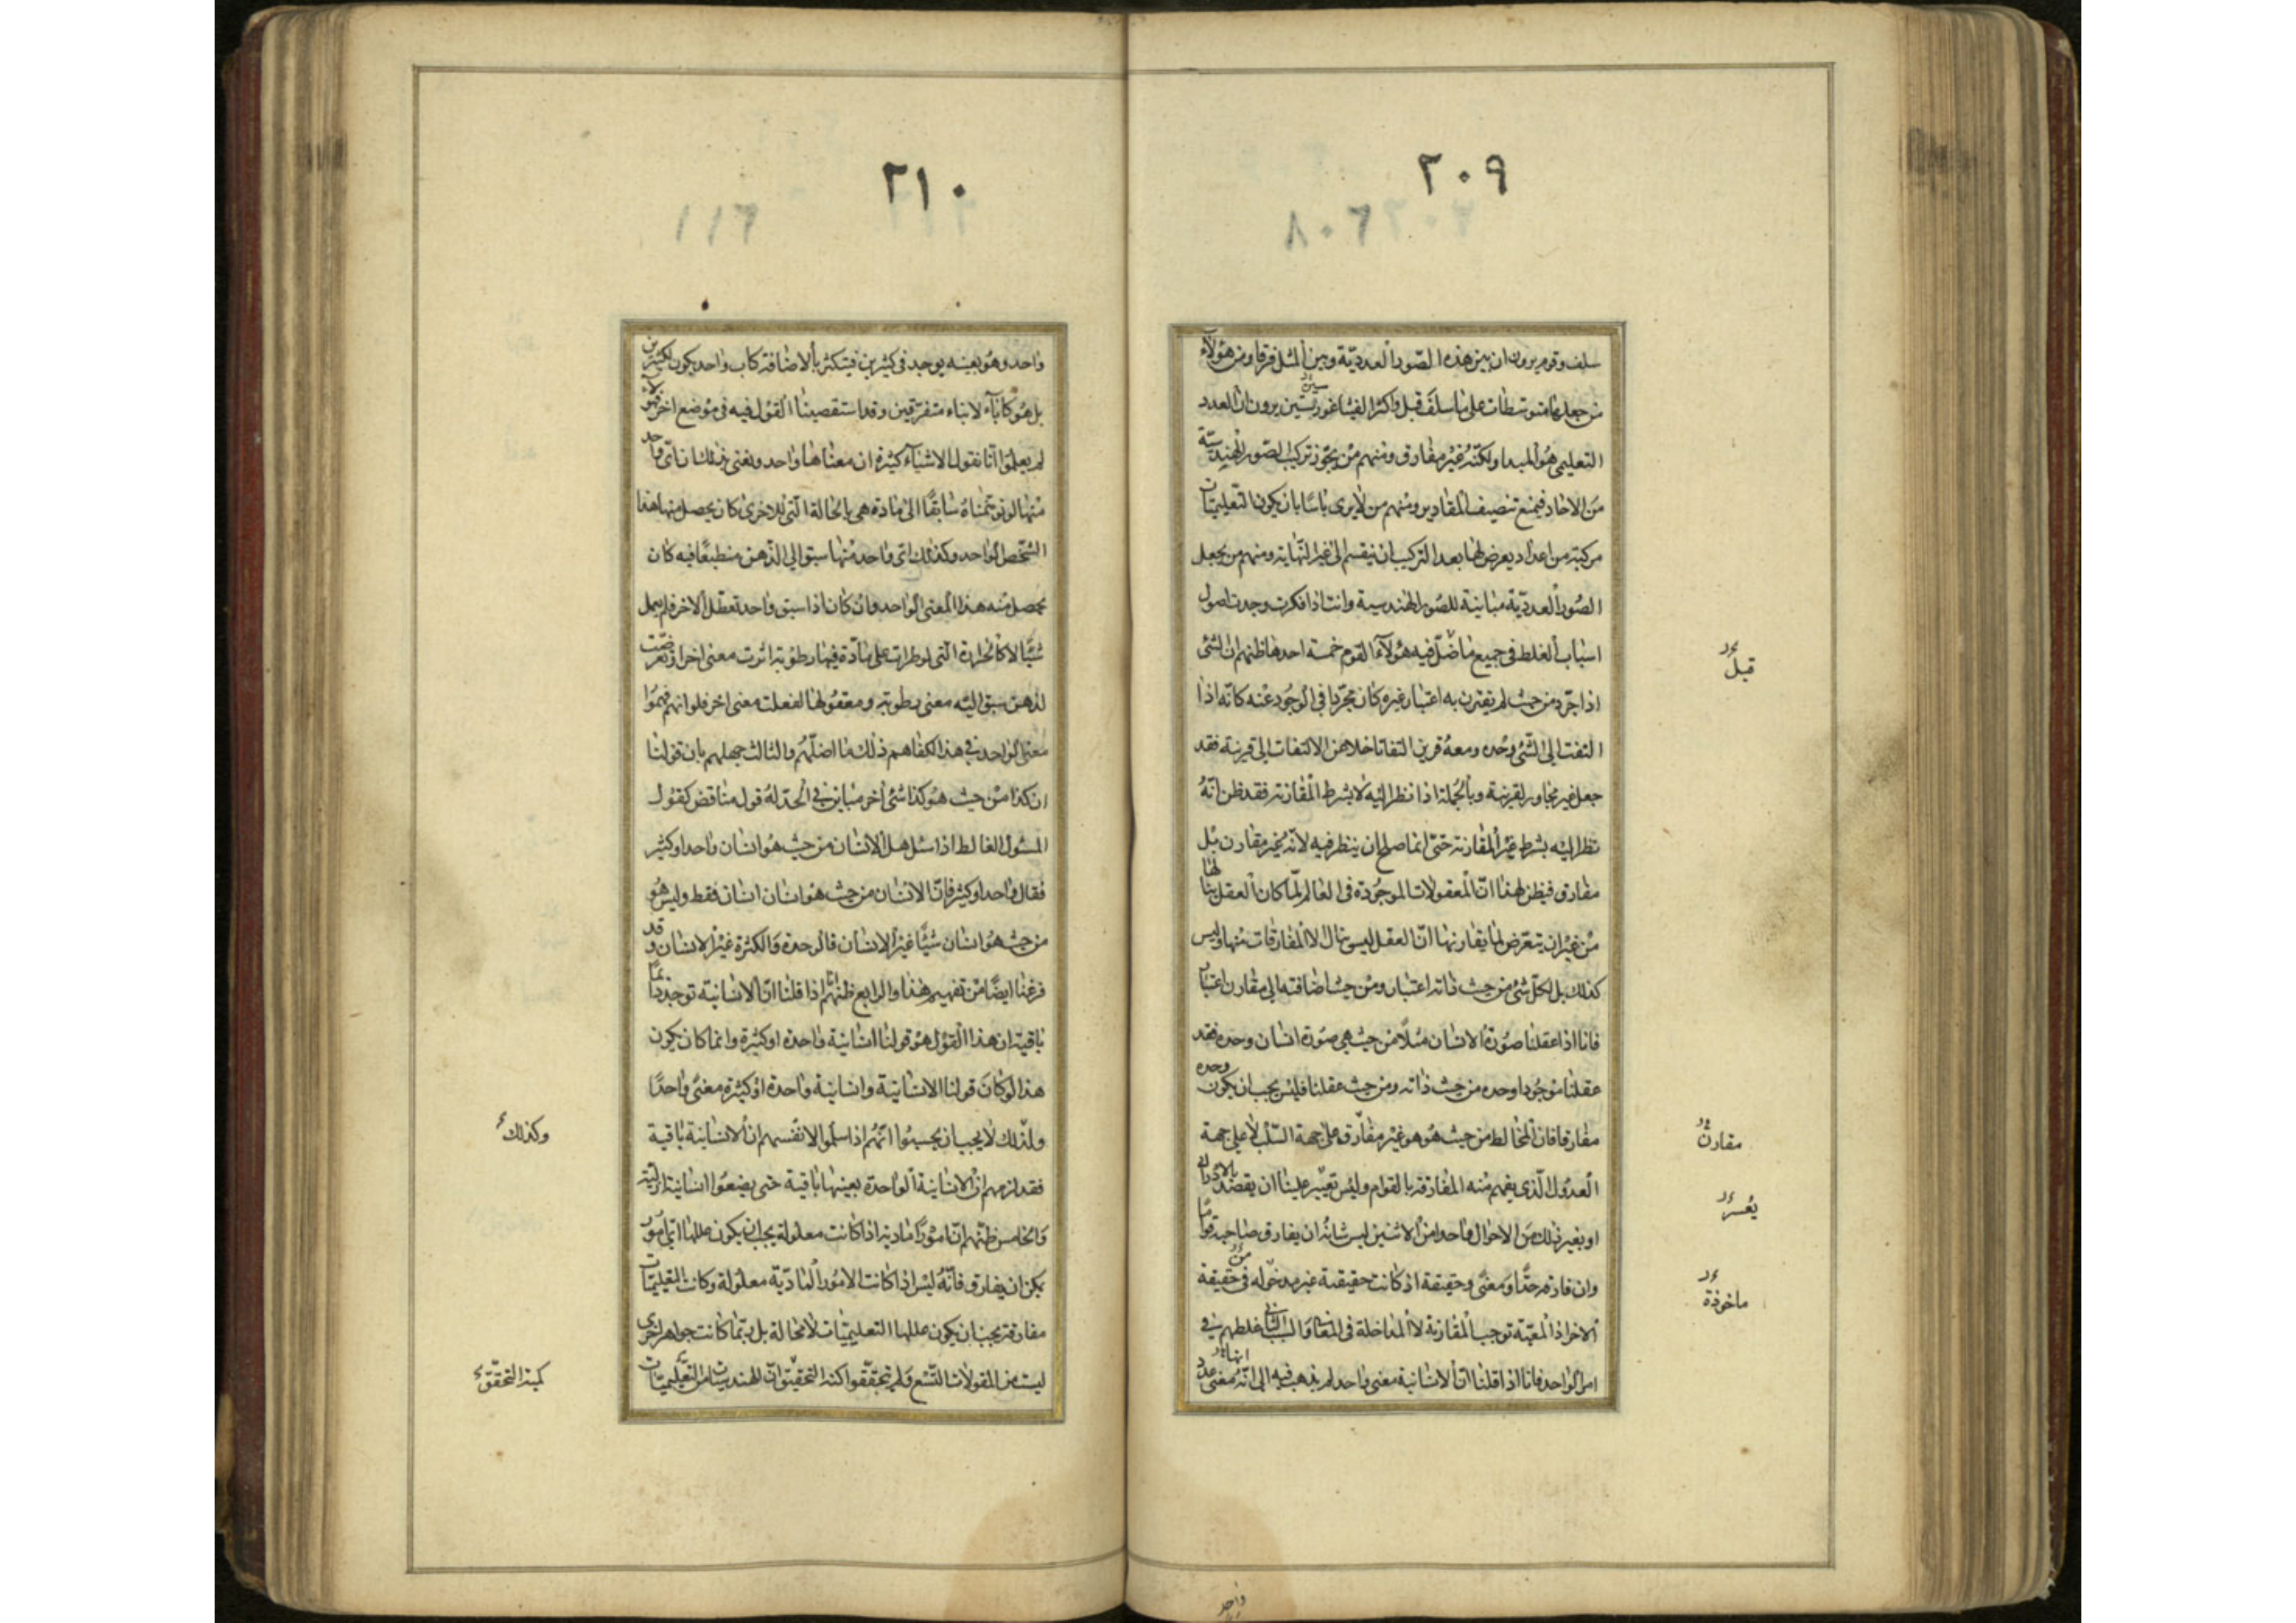 ٢٠٩
٨٠٦
سلف وقوم يرون ان بين هذه الصّور العدديّة وبين المثل فرقا ومن هؤلاء
من جعلها متوسّطات على ما سلف قبل واكثر الفيثاغوريّين يرون ان العدد
التعليمى هو المبدا ولكنّه غير مفارق ومنهم من يجوّز تركيب الصّور الهندسيّة
من الاحاد فيمنع تنصيف المقادير ومنهم من لا يرى باسًا بان يكون التّعليميّات
مركبة من اعداد يعرض لها بعد التركيب ان ينقسم الى غير النّهاية ومنهم من يجعل
الصّور العدديّة مباينة للصّور الهندسية وانت اذا فكرت وجدت اصول
اسباب الغلط فى جميع ما ضلّ فيه هؤلاء القوم خمسة احدها ظنهم ان الشئ
اذا جرّد من حيث لم يقترن به اعتبار غيره كان مجرّدا فى الوجود عنه كانّه اذا
التفت الى الشّئ وحده ومعه قرين التفاتا خلا عن الالتفات الى قرينة فقد
جعل غير مجاور لقرينه وبالجملة اذا نظر اليه لا بشرط المقارنة فقد ظن انّه
نظر اليه بشرط غير المقارنة حتّى انما صلح ان ينظر فيه لانّه غير مقارن بل
مفارق فيظن لهذا انّ المعقولات الموجودة فى العالم لمّا كان العقل ينالها
من غير ان يتعرّض لما يقارنها انّ العقل ليس ينال الا المفارقات منها وليس
كذلك بل لكلّ شئ من حيث ذاته اعتبار ومن حيث اضافته الى مقارن اعتبار
فانا اذا عقلنا صورة الانسان مثلًا من حيث هى صورة انسان وحده فقد
عقلنا موجودا وحده من حيث ذاته ومن حيث عقلنا فليس يجب ان يكون وحده
مفارقا فان المخالط من حيث هو هو غير مفارق على جهة السّلب لا على جهة
العدول الّذى يفهم منه المفارقة بالقوام وليس تعيّر علينا ان يقصد بالادراك
او بغير ذلك من الاحوال واحدا من الاثنين ليس شانه ان يفارق صاحبه قواما
وان فارقه حدًّا ومعنًى وحقيقة اذ كانت حقيقته غير مدخوله فى حقيقة
الاخر اذ المعيّة توجب المقارنة لا المداخلة فى المعانى والسبب الثانى غلطهم فى
امر الواحد فانا اذا قلنا انّ الانسانية معنى واحد لم يذهب فيه الى انّه معنى عدد
قبل
مقارن
يعسر
ماخوذة
انها
واحد
٢١٠
١١٦
واحد وهو بعينه يوجد فى كثيرين فيتكثر بالاضافة كاب واحد يكون لكثيرين
بل هو كآباء لابناء متفرّقين وقد استقصينا القول فيه فى موضع اخر فهؤلاء
لم يعلموا أنّا نقول لاشياء كثيرة ان معناها واحد ونعنى بذلك ان اىّ واحد
منها لو توهّمناه سابقًا الى مادة هى بالحالة الّتى للاخرى كان يحصل منها هذا
الشّخص الواحد وكذلك اىّ واحد منها سبق الى الذّهن منطبعًا فيه كان
يحصل منه هذا المعنى الواحد وان كان اذا سبق واحد تعطّل الاخر فلم يعمل
شيئًا كالحرارة الّتى لو طرات على مادّة فيها رطوبة اثرت معنى اخر او تعرّضت
لذهن سبق اليه معنى رطوبة ومعقولها لفعلت معنى اخر فلو انهم فهموا
معنى الواحد فى هذا لكفاهم ذلك ما اضلّهم والثالث جهلهم بان قولنا
ان كذا من حيث هو كذا شئ اخر مباين فى الحدّ له قول مناقض كقول
المسئول الغالط اذا سئل هل الانسان من حيث هو انسان واحد او كثير
فقال واحد او كثير فانّ الانسان من حيث هو انسان انسان فقط وليس هو
من حيث هو انسان شيئًا غير الانسان فالوحدة والكثرة غير الانسان وقد
فرغنا ايضًا من تفهيم هذا والرابع ظنهم انا اذا قلنا انّ الانسانية توجد دائمًا
باقية ان هذا القول هو قولنا انسانية واحدة او كثيرة وانما كان يكون
هذا لو كان قولنا الانسانية وانسانية واحدة او كثيرة معنًى واحدًا
ولذلك لا يجب ان يحسبوا انّهم اذا سلموا لانفسهم ان الانسانية باقية
فقد لزمهم ان الانسانية الواحدة بعينها باقية حتى يضعوا انسانية ازلية
والخامس ظنّهم انّ امورًا مادية اذا كانت معلولة يجب ان يكون عللها اىّ امور
يمكن ان يفارق فانّه ليس اذا كانت الامور المادّية معلولة وكانت التعليميّات
مفارقة يجب ان يكون عللها التعليميّات لا محالة بل ربّما كانت جواهر اخرى
ليست من المقولات التّسع ولم يتحقّقوا كنه التحقيق انّ الهندسيات من التعليميّات
وكذلك
كنه التحقّق